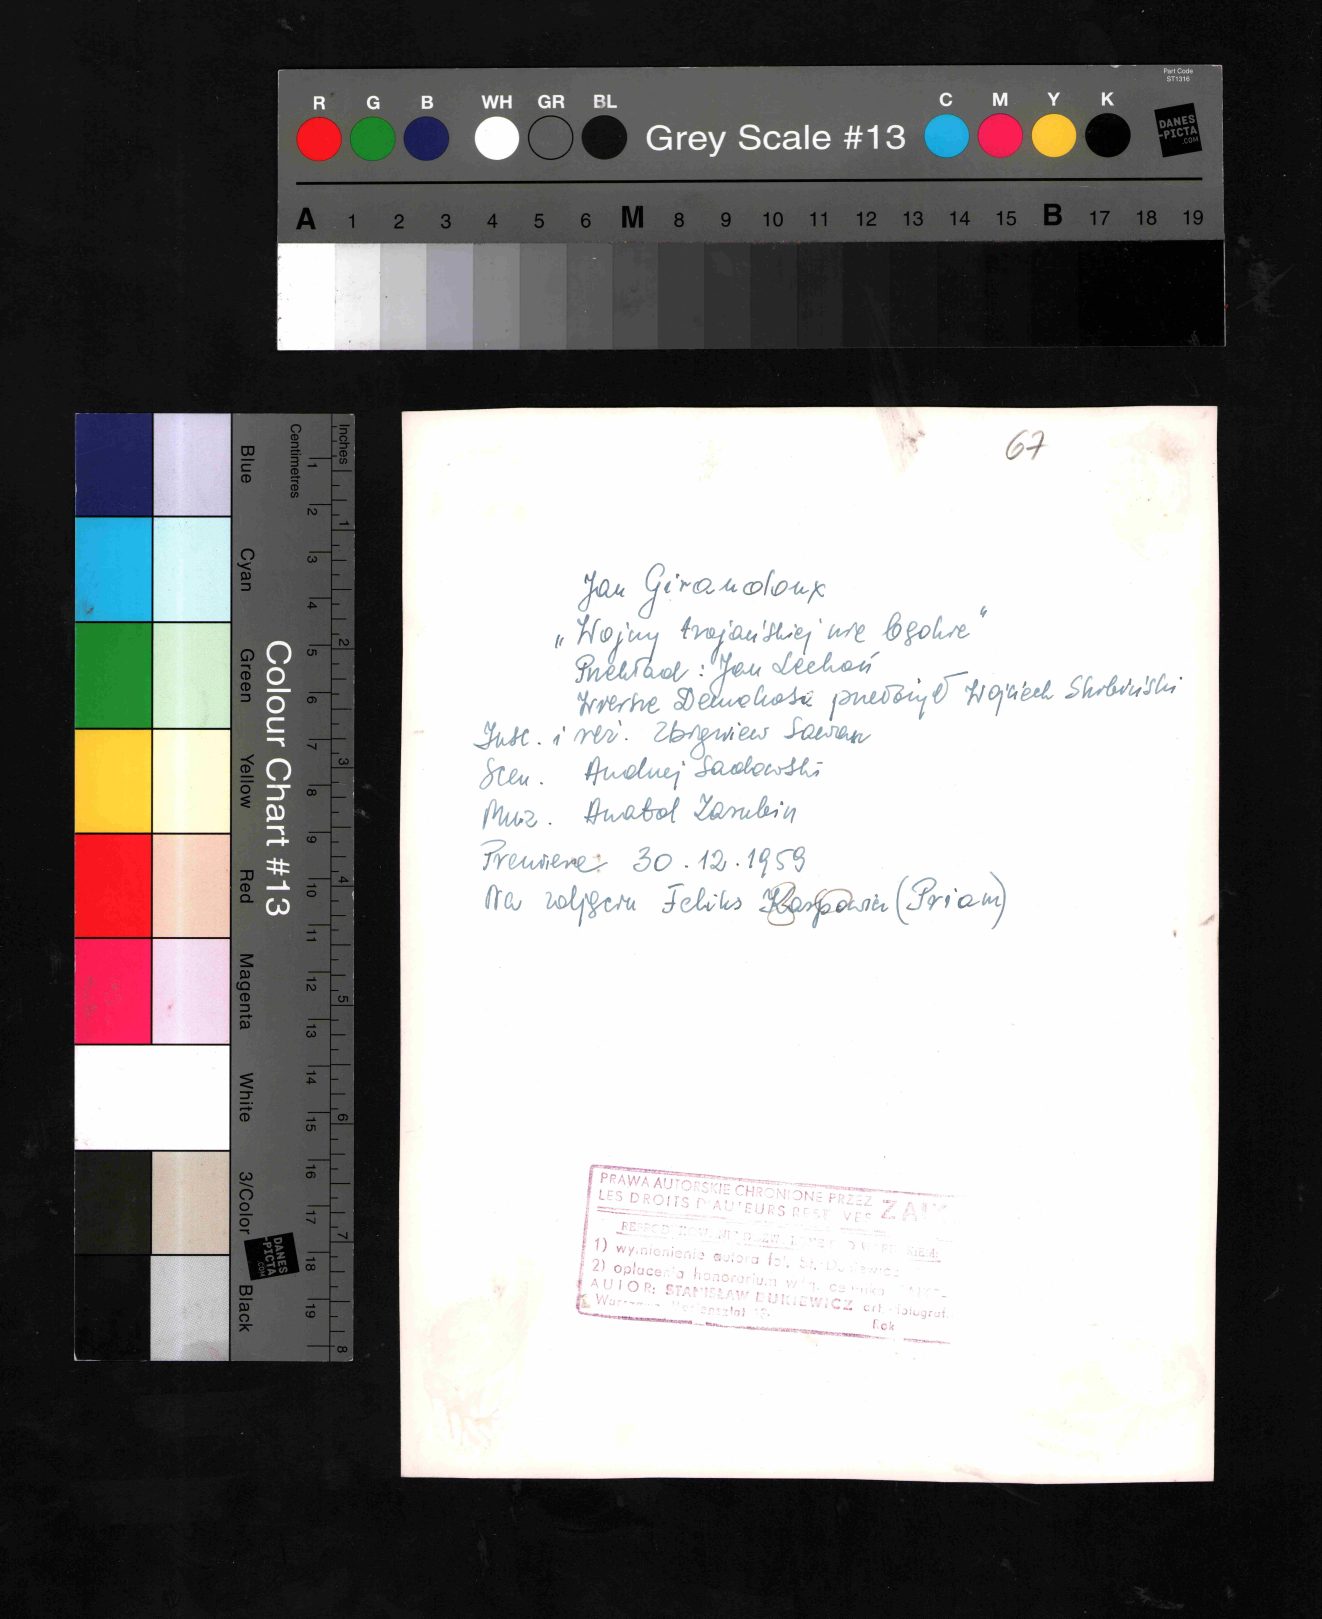 Part Code
ST1316
R G B WH GR BL Grey Scale #13 C M Y K
DANES
-PICTA
.COM
A 1 2 3 4 5 6 M 8 9 10 11 12 13 14 15 B 17 18 19
Colour Chart #13
Blue Cyan Green Yellow Red Magenta White 3/Color Black
Centimetres 1 2 3 4 5 6 7 8 9 10 11 12 13 14 15 16 17 18 19
Inches 1 2 3 4 5 6 7 8
DANES
-PICTA
.COM
67
Jan Giraudoux
„Wojny trojańskiej nie będzie"
Przekład: Jan Lechoń
Wiersze Demokosa przełożył Wojciech Skibiński
Insc. i reż. Zbigniew Sawan
Scen. Andrzej Sadowski
Muz. Anatol Zarubin
Premiera 30.12.1959
Na zdjęciu Feliks (Priam)
PRAWA AUTORSKIE CHRONIONE PRZEZ
LES DROITS D'AUTEURS RESERVES
1) wymienienie autora fot.
2) opłacenia honorarium
AUTOR: STANISŁAW BUKIEWICZ art. fotograf.
Rok